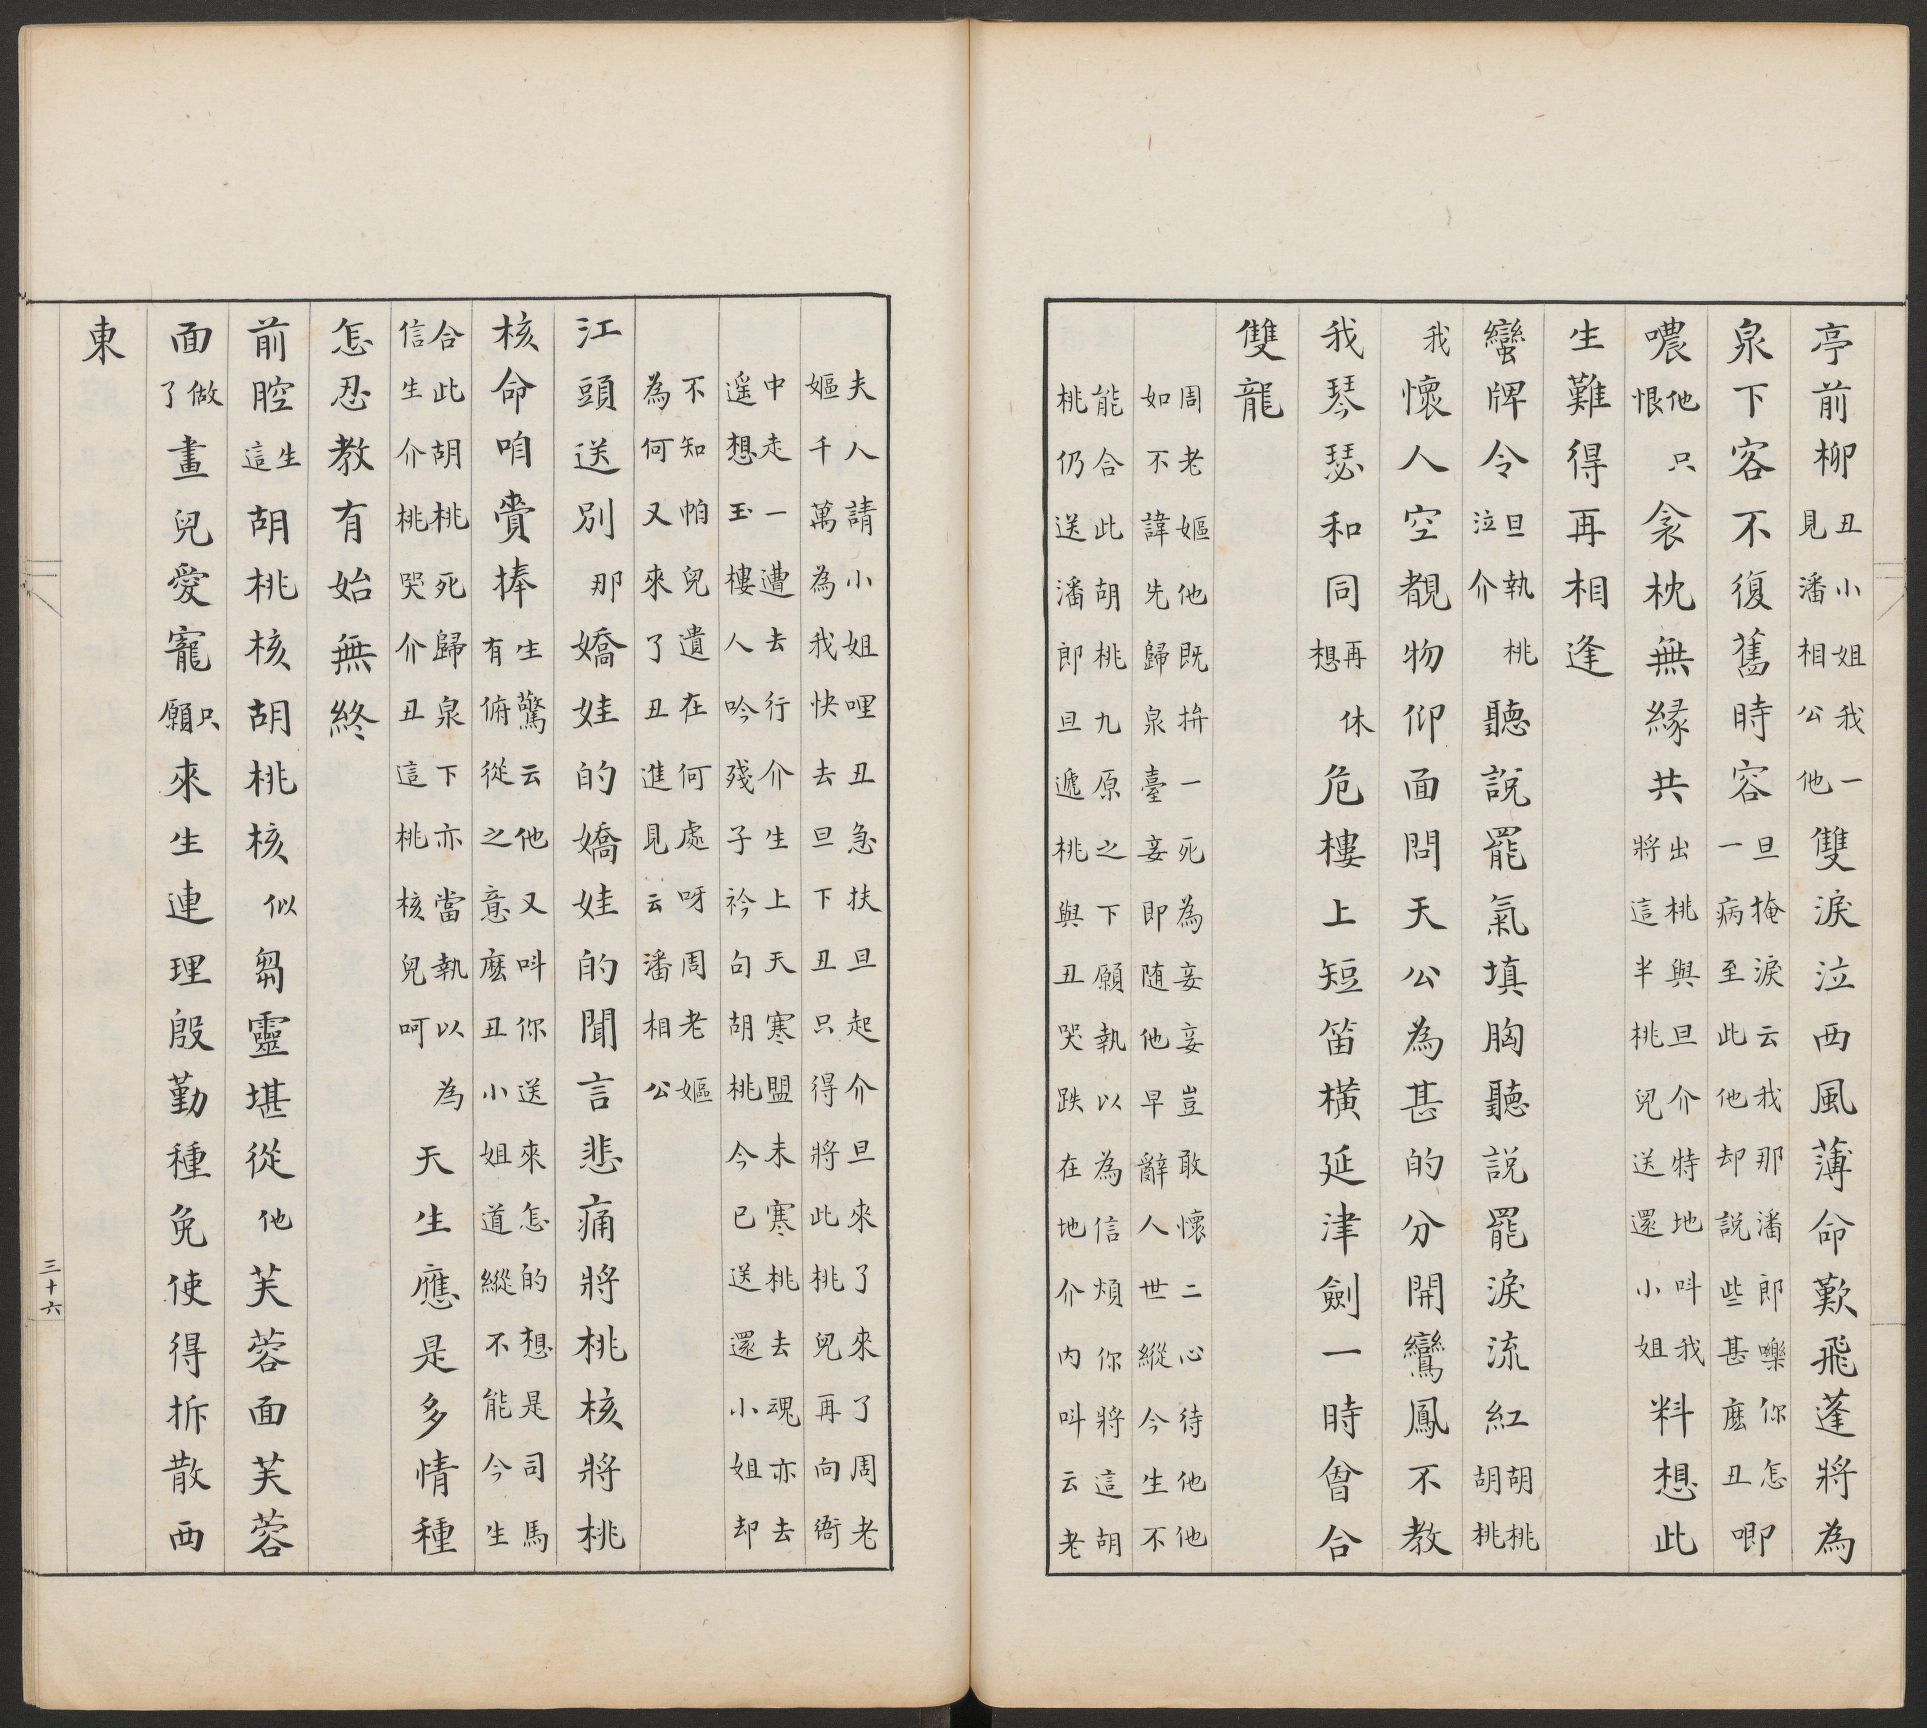 亭前柳丑小姐我一見潘相公他雙淚泣西風薄命歎飛蓬將為
泉下客不復舊時容旦掩淚云我那潘郎嚛你怎一病至此他却説些甚麽丑唧
噥他恨只衾枕無緣共出桃與旦介特地呌我將這半桃兒送還小姐料想此
生難得再相逢
蠻牌令旦執泣介桃聽説罷氣填胸聽説罷淚流紅胡桃胡桃
我懷人空覩物仰面問天公為甚的分開鸞鳳不教
我琴瑟和同再想休危樓上短笛橫延津劍一時曾合
雙龍
周老嫗他既拚一死為妾妾豈敢懷二心待他他
如不諱先歸泉臺妾即随他早辭人世縱今生不
能合此胡桃九原之下願執以為信煩你將這胡
桃仍送潘郎旦遞桃與丑哭跌在地介内呌云老
夫人請小姐哩丑急扶旦起介旦來了來了周老
嫗千萬為我快去旦下丑只得將此桃兒再向衙
中走一遭去行介生上天寒盟未寒桃去魂亦去
遥想玉樓人吟殘子衿句胡桃今已送還小姐却
不知帕兒遺在何處呀周老嫗
為何又來了丑進見云潘相公
江頭送別那嬌娃的嬌娃的聞言悲痛將桃核將桃
核命咱賫捧生驚云他又呌你送來怎的想是司馬有俯從之意麽丑小姐道縱不能今生
合此胡桃死歸泉下亦當執以為信生介桃哭介丑這桃核兒呵天生應是多情種
怎忍教有始無終
前腔生這胡桃核胡桃核似芻靈堪從他芙蓉面芙蓉
面做了畫兒愛寵只願來生連理殷勤種免使得拆散西
東
三十六